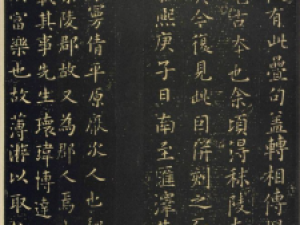 有此疊句蓋轉相傳
本也余頃得秣陵
今復見此因併刻之
熙庚子日南至匯澤
曼倩平原厭次人也
陵郡故又為郡人焉
其事先生瓌瑋博達
富樂也故薄游以取